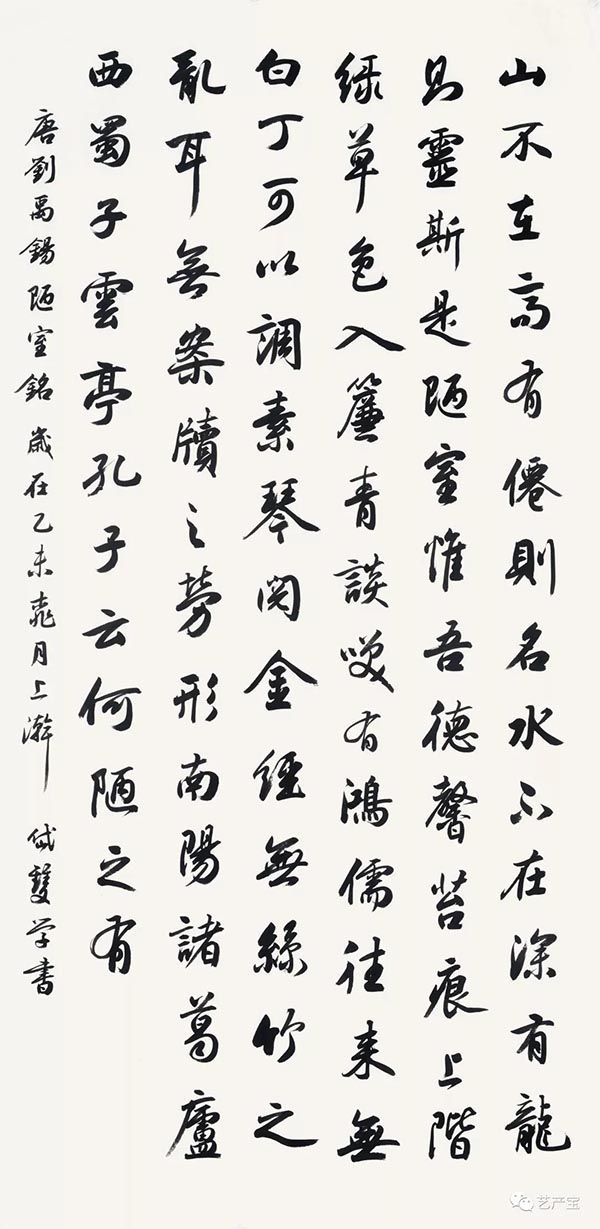 山不在高有僊則名水不在深有龍
則靈斯是陋室惟吾德馨苔痕上階
綠草色入簾青談咲有鴻儒往来無
白丁可以調素琴閱金經無絲竹之
亂耳無案牘之勞形南陽諸葛廬
西蜀子雲亭孔子云何陋之有
唐劉禹錫陋室銘歲在乙未月上澣 雙学書
艺产宝